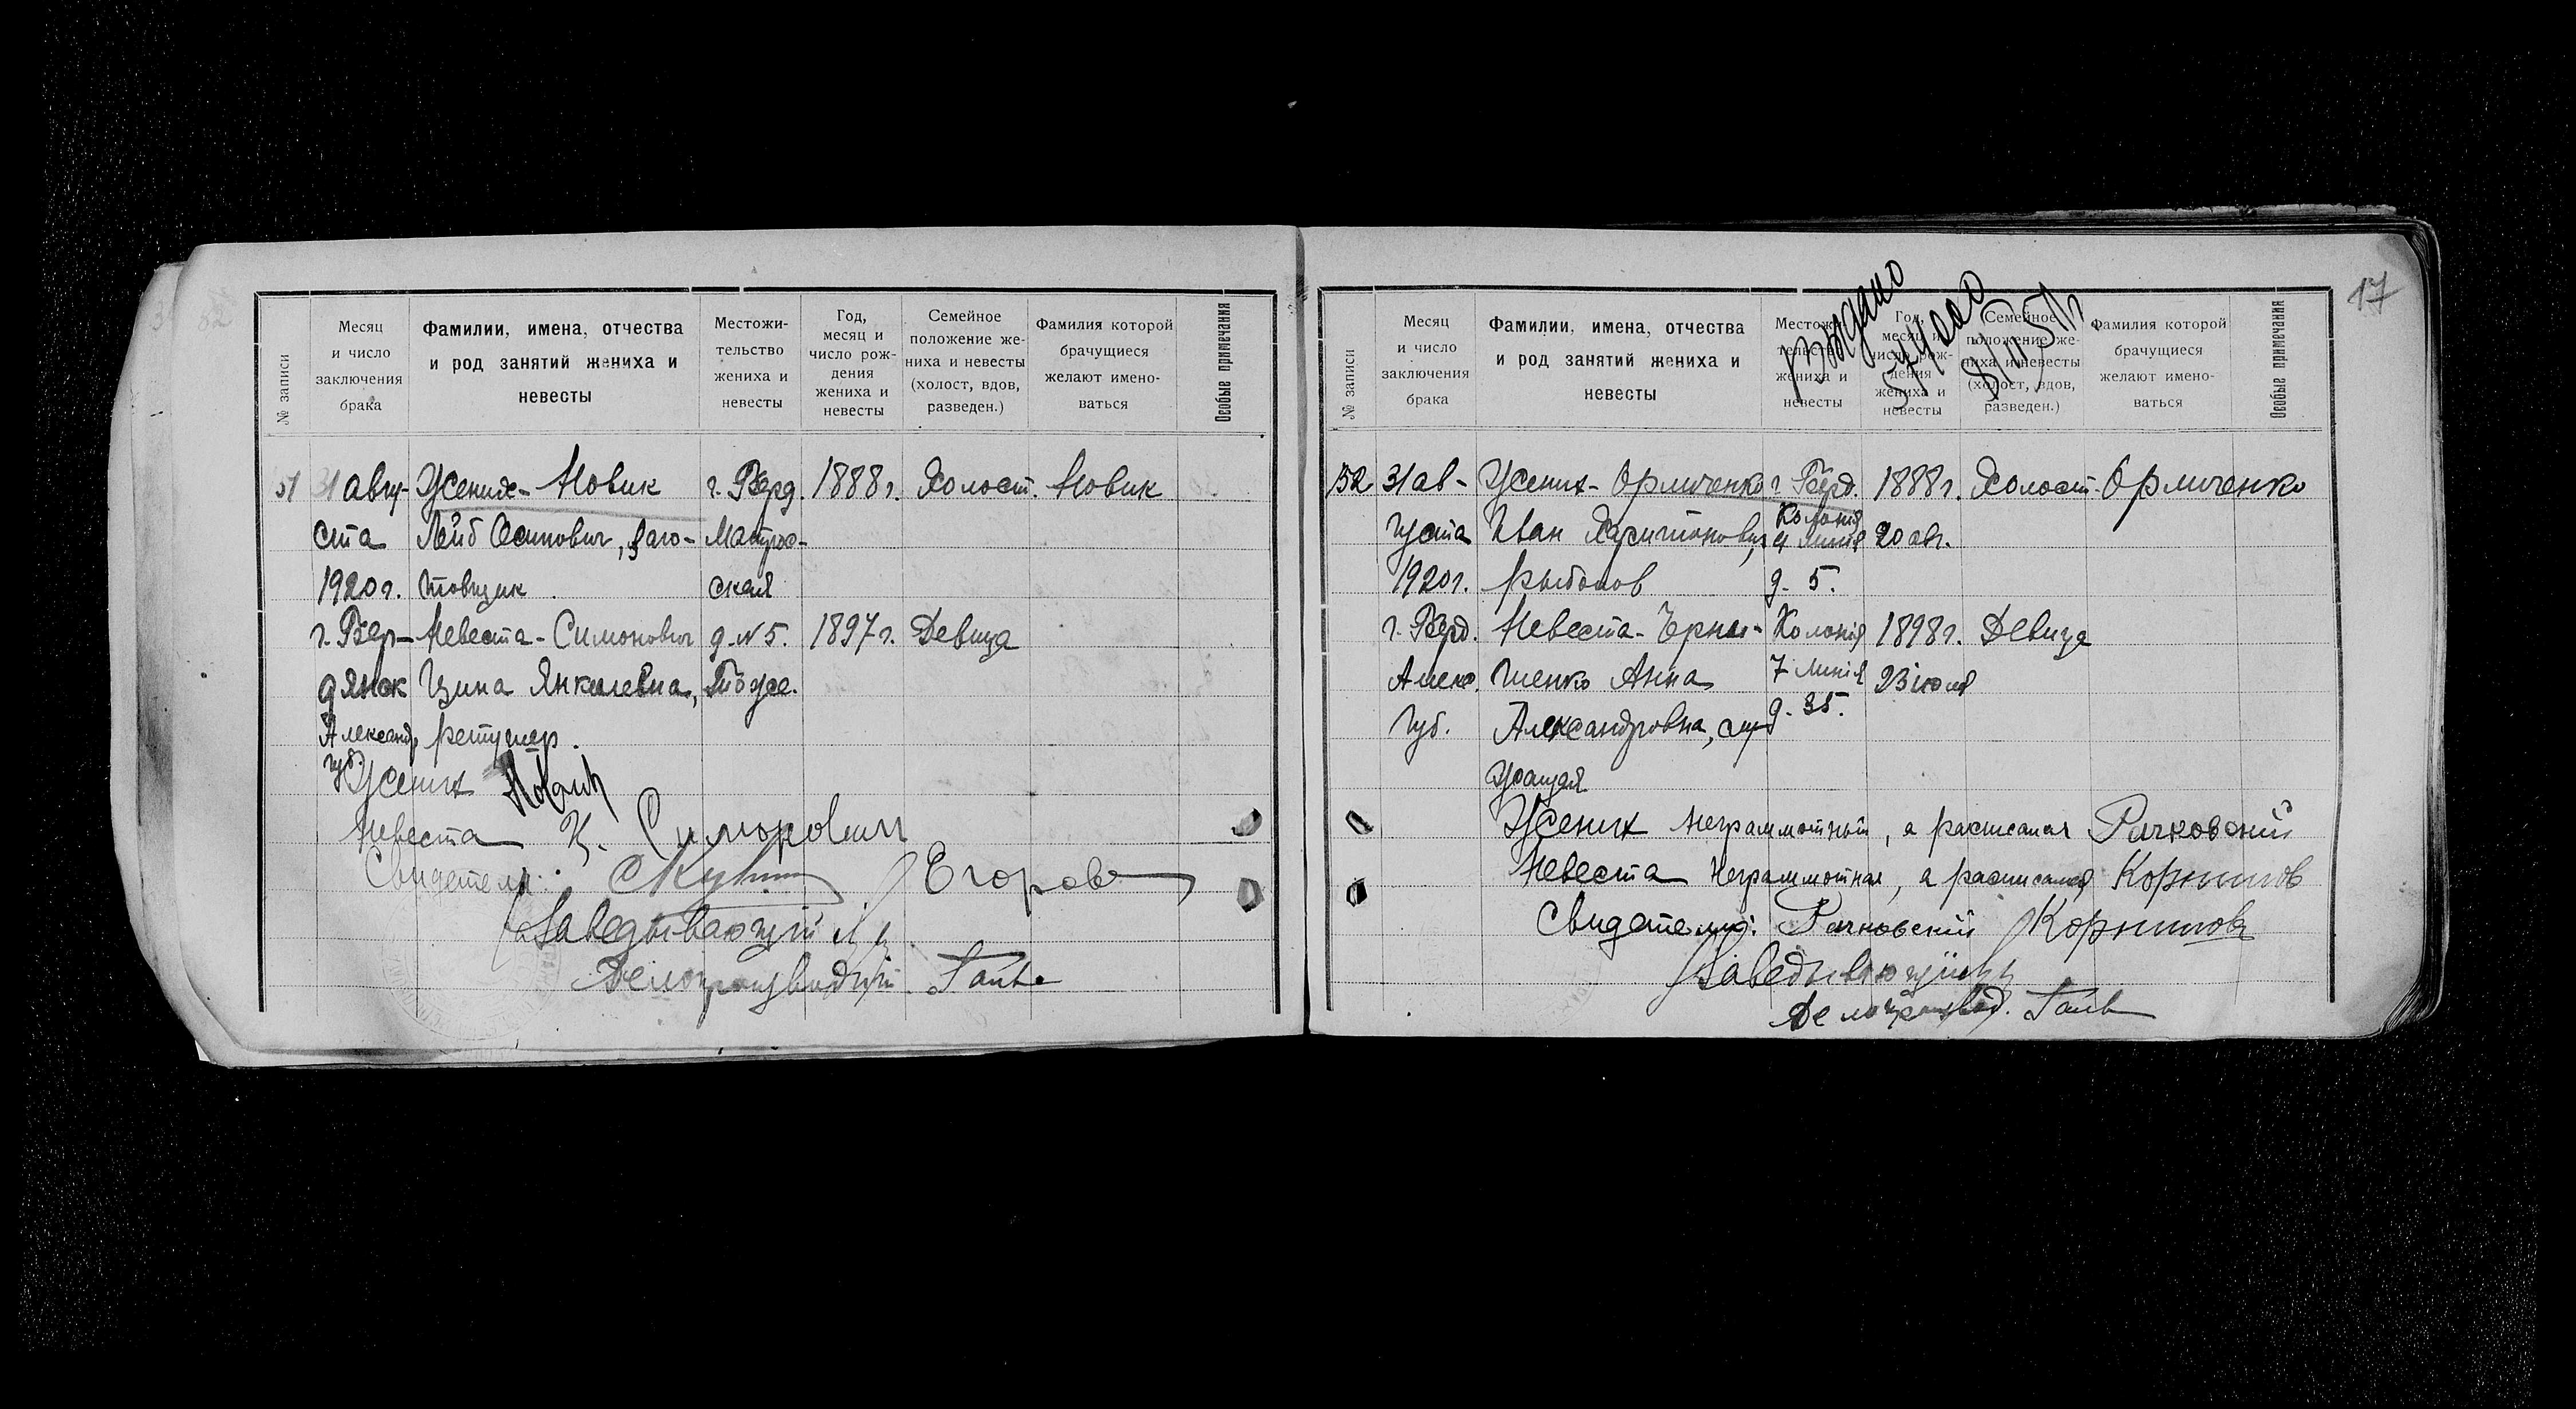 № записи
Месяц и число заключения брака
Фамилии, имена, отчества и род занятий жениха и невесты
Местожительство жениха и невесты
Год, месяц и число рождения жениха и невесты
Семейное положение жениха и невесты (холост, вдов, разведен.)
Фамилия которой брачущиеся желают именоваться
Особые примечания
51 31 авгу- Жених - Новик г. Берд. 1888 г. Холост. Новик
ста Лейб Осипович, заго- Матрос-
1920 г. товщик ская
г. Бер- Невеста - Симонович д. № 5. 1897 г. Девица
дянск Цина Янкилевна, Тоже.
Александ. ретушер.
губ.
Жених Новик
Невеста Ц. Симонович
Свидетели: Егоров
Заведывающий
Делопроизводит.
17
Выдано
№ записи
Месяц и число заключения брака
Фамилии, имена, отчества и род занятий жениха и невесты
Местожительство жениха и невесты
Год, месяц и число рождения жениха и невесты
Семейное положение жениха и невесты (холост, вдов, разведен.)
Фамилия которой брачущиеся желают именоваться
Особые примечания
52 31 ав- Жених - Орличенко г. Берд. 1888 г. Холост. Орличенко
густа Иван Харитонович, Колонія 4 линія 20 авг.
1920 г. рыболов д. 5.
г. Берд. Невеста - Черны- Колонія 1898 г. Девица
Алекс. шенко Анна 7 линія 23 іюля
губ. Александровна, слу- д. 35.
жащая
Жених неграммотный, а расписался Рачковский
Невеста неграммотная, а расписался Корнилов
Свидетели: Рачковский Корнилов
Заведывающий
Делопроизвод.